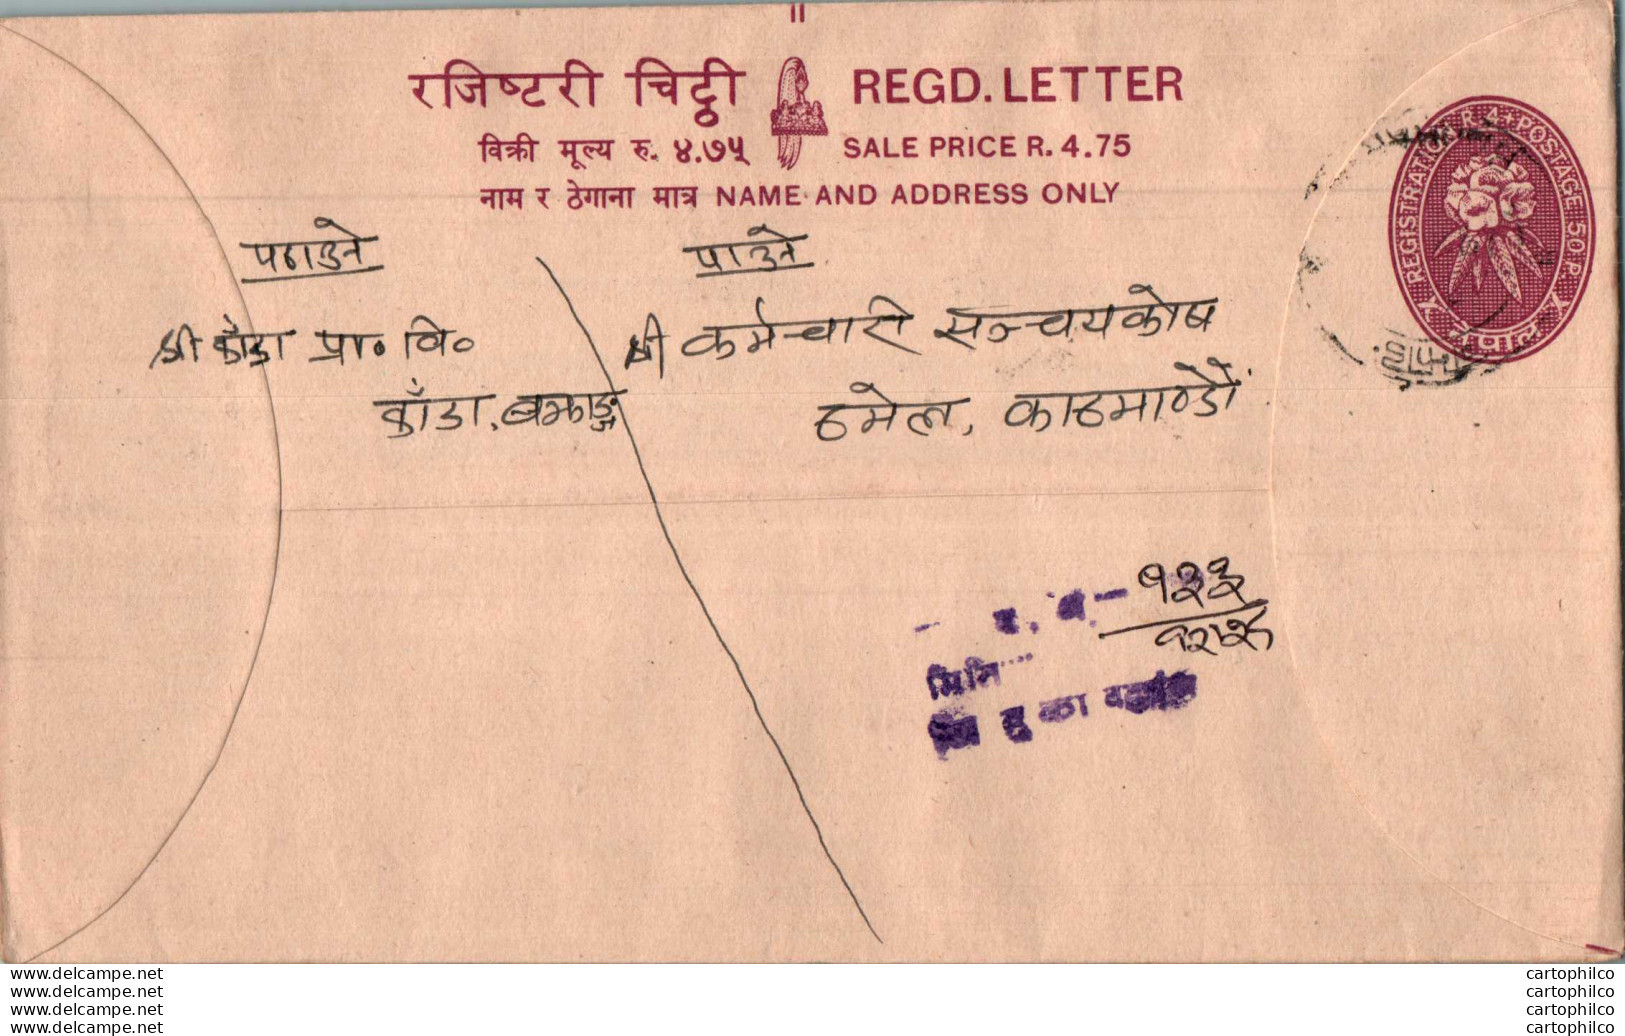 रजिष्टरी चिठ्ठी REGD. LETTER
विक्री मूल्य रु. ४.७५ SALE PRICE R. 4.75
नाम र ठेगाना मात्र NAME AND ADDRESS ONLY
REGISTRATION R. 4 + POSTAGE 50 P.
नेपाल
पठाउने
श्री काँडा प्रा० वि०
काँडा, बझाङ्ग
पाउने
श्री कर्मचारी सञ्चयकोष
ठमेल, काठमाण्डौं
१२३
मिति
www.delcampe.net
www.delcampe.net
www.delcampe.net
www.delcampe.net
cartophilco
cartophilco
cartophilco
cartophilco